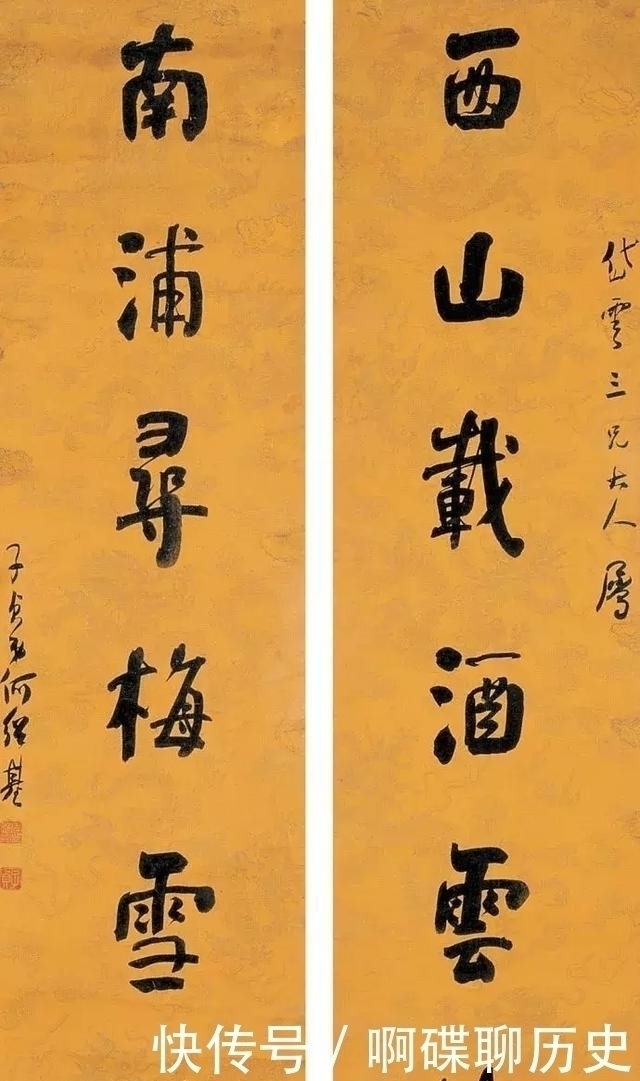 岱雲三兄大人属
西山載酒雲
南浦尋梅雪
子貞弟何紹基
快传号 / 啊碟聊历史